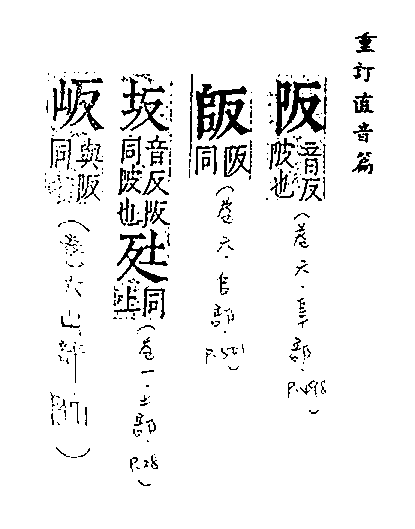 重訂直音篇
阪 音反陂也 (卷六·阜部·P.498)
阪同 (卷六·部·P.521)
坂 音反阪同陂也 同上 (卷一·土部·P.28)
岅 與阪同 (卷山部)